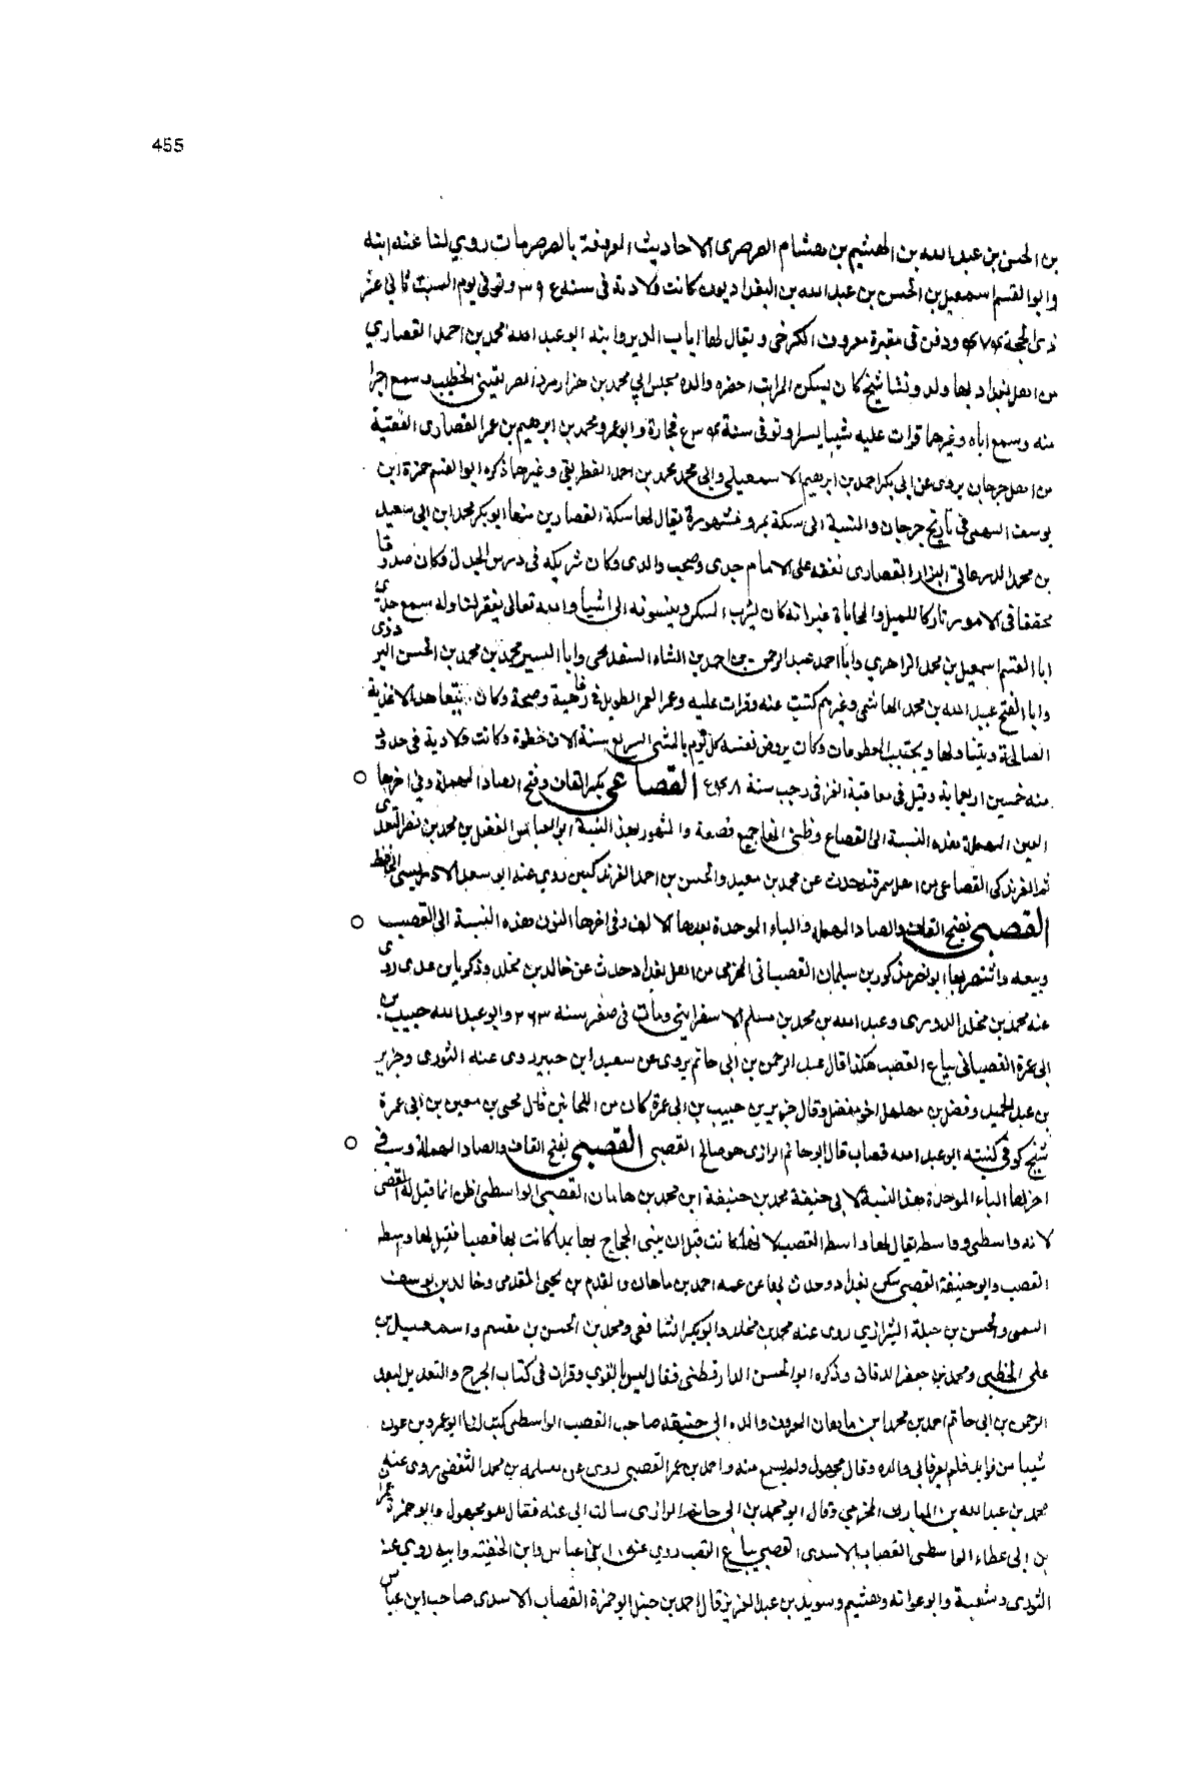 455
بن الحسن بن عبد الله بن الهشيم بن هشام الصرصرى الاحاديث المعروفة بالصرصرات روي لنا عنه ابنه
وابو القسم اسمعيل بن الحسن بن عبد الله بن البغداديون كانت ولادته فى سنة وتوفى يوم السبت ثانى عشر
ذى الحجة ودفن فى مقبرة معروف الكرخى ويقال لها باب الدير وابنه ابو عبد الله محمد بن احمد القصاري
من اهل بغداد بها ولد ونشا شيخ كان يسكن المراتب احضره والده مجلس ابي محمد بن هزارمرد الصريفينى الخطيب وسمع اجزا
منه وسمع اباه وغيرهما قرات عليه شيا يسيرا وتوفى سنة وابو عمرو محمد بن ابرهيم بن عمر القصارى الفقيه
من اهل جرجان يروى عن ابى بكر احمد بن ابرهيم الاسمعيلى وابى محمد محمد بن احمد الغطريفى وغيرهما ذكره ابو القسم حمزة ابن
يوسف السهمى فى تاريخ جرجان والنسبة الى سكة بمرو مشهورة يقال لها سكة القصارين منها ابو بكر محمد ابن ابى سعيد
بن محمد البزار القصارى تفقه على الامام جدى وصحب والدى وكان شريكه فى درس الجدل وكان صدوقا
محققا فى الامور تاركا للميل والمحاباة غير انه كان يشرب المسكر وينسونه الى اشيا والله تعالى يغفر لنا وله سمع جدى
ابا القسم اسمعيل بن محمد الزاهري وابا احمد عبد الرحمن بن احمد بن الشاه وابا اليسر محمد بن محمد بن الحسن البزدوى
وابا الفتح عبيد الله بن محمد الهاشمى وغيرهم كتبت عنه وقرات عليه وعمر العمر الطويل فى رفاهية وصحة وكان يتعاهد الاغذية
الصالحة ويتناولها ويجتنب وكان يروض نفسه كل يوم بالمشى السريع ستة الاف خطوة وكانت ولادته فى حدود
سنة خمسين اربعماية وقتل فى معاقبة الغز فى رجب سنة القصاعى بكسر القاف وفتح الصاد المهملة وفى اخرها
العين المهملة هذه النسبة الى القصاع وظنى انها جمع قصعة والمشهور بهذه النسبة ابو العباس الفضل بن محمد بن نصر السغدى
ثم القصاعى من اهل سمرقند حدث عن محمد بن معبد والحسن بن احمد روي عنه ابو سعد الادريسى الحافظ
القصبى بفتح القاف والصاد المهملة والباء الموحدة بعدها الالف وفى اخرها النون هذه النسبة الى القصب
وبيعه واشتهر بها ابو نصر مذكور بن سليمان القصبانى المخرمى من اهل بغداد حدث عن خالد بن مخلد وزكريا بن عدى روى
عنه محمد بن مخلد الدورى وعبد الله بن محمد بن مسلم الاسفراينى ومات فى صفر سنة ٢٦٣ وابو عبد الله حبيب بن
ابى عمرة القصبانى بياع القصب هكذا قال عبد الرحمن بن ابى حاتم يروى عن سعيد ابن جبير روى عنه الثورى وجرير
بن عبد الحميد وفضل بن مهلهل اخو مفضل وقال جرير بن حبيب بن ابى عمرة كان من اللحانين قال يحيى بن معين بن ابى عمرة
شيخ كوفى كنيته ابو عبد الله قصاب قال ابو حاتم الرازى هو صالح القصبى القصبى بفتح القاف والصاد المهملة وفى
اخرها الباء الموحدة هذه النسبة لابى حنيفة محمد بن حنيفة ابن محمد بن هامان القصبى الواسطى اظن انما قيل له القصبى
لانه واسطى وواسط يقال لها واسط القصب لانها كانت قبل ان يبنى الحجاج بها بلدا كانت بها قصبا فقيل لها واسط
القصب وابو حنيفة القصبى سكن بغداد وحدث بها عن عمه احمد بن ماهان والمقدم بن يحيى المقدمى وخالد بن يوسف
السمتى والحسن بن جبلة الشيرازي روى عنه محمد بن مخلد وابو بكر الشافعى ومحمد بن الحسن بن مقسم واسمعيل بن
على الخطبى ومحمد بن جعفر الدقاق وذكره ابو الحسن الدارقطنى فقال ليس بالقوي وقرات فى كتاب الجرح والتعديل لعبد
الرحمن بن ابى حاتم احمد بن محمد ابن ماهان المعروف والده بابى حنيفة صاحب القصب الواسطى كتب لنا ابو عمرو بن عون
شيا من فوايده فلم يعرفابى والده وقال مجهول ولم يسمع منه واحمد بن عمر القصبى روى عن مسلمه بن محمد الثقفى روى عنه
محمد بن عبد الله بن المبارك المخرمي وقال ابو محمد بن ابى حاتم الرازى سالت ابى عنه فقال هو مجهول وابو حمزة عمران
بن ابى عطاء الواسطى القصاب الاسدى القصبى بياع القصب روي عن ابن عباس وابن الحنفيه وابيه روي عنه
الثورى وشعبة وابو عوانه وهشيم وسويد بن عبد العزيز قال احمد بن حنبل ابو حمزة القصاب الاسدى صاحب ابن عباس